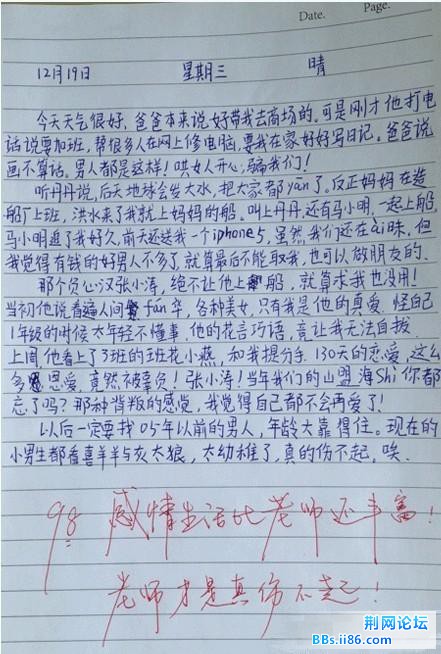 Date.
Page.
12月19日 星期三 晴
今天天气很好，爸爸本来说好带我去商场的。可是刚才他打电
话说要加班，帮很多人在网上修电脑，要我在家好好写日记。爸爸说
画不算话。男人都是这样！哄女人开心，骗我们！
听丹丹说，后天地球会发大水，把大家都yān了。反正妈妈在造
船厂上班，洪水来了我就上妈妈的船。叫上丹丹，还有马小明，一起上船，
马小明追了我好久，前天还送我一个iphone5，虽然我们还在ài昧，但
我觉得有钱的好男人不多了，就算最后不能取我，也可以做朋友的。
那个负心汉张小涛，绝不让他上船，就算求我也没用！
当初他说看遍人间fán华，各种美女，只有我是他的真爱，怪自己
1年级的时候太年轻不懂事，他的花言巧语，竟让我无法自拔，
上周他看上了3班的班花小燕，和我提分手，130天的恋爱，这么
多恩爱，竟然被辜负！张小涛！当年我们的山盟海Shi你都
忘了吗？那种背叛的感觉，我觉得自己都不会再爱了！
以后一定要找05年以前的男人，年龄大靠得住。现在的
小男生都看喜羊羊与灰太狼，太幼稚了，真的伤不起，唉。
98 感情生活比老师还丰富！
老师才是真伤不起！
荆网论坛
BBs.ii86.com